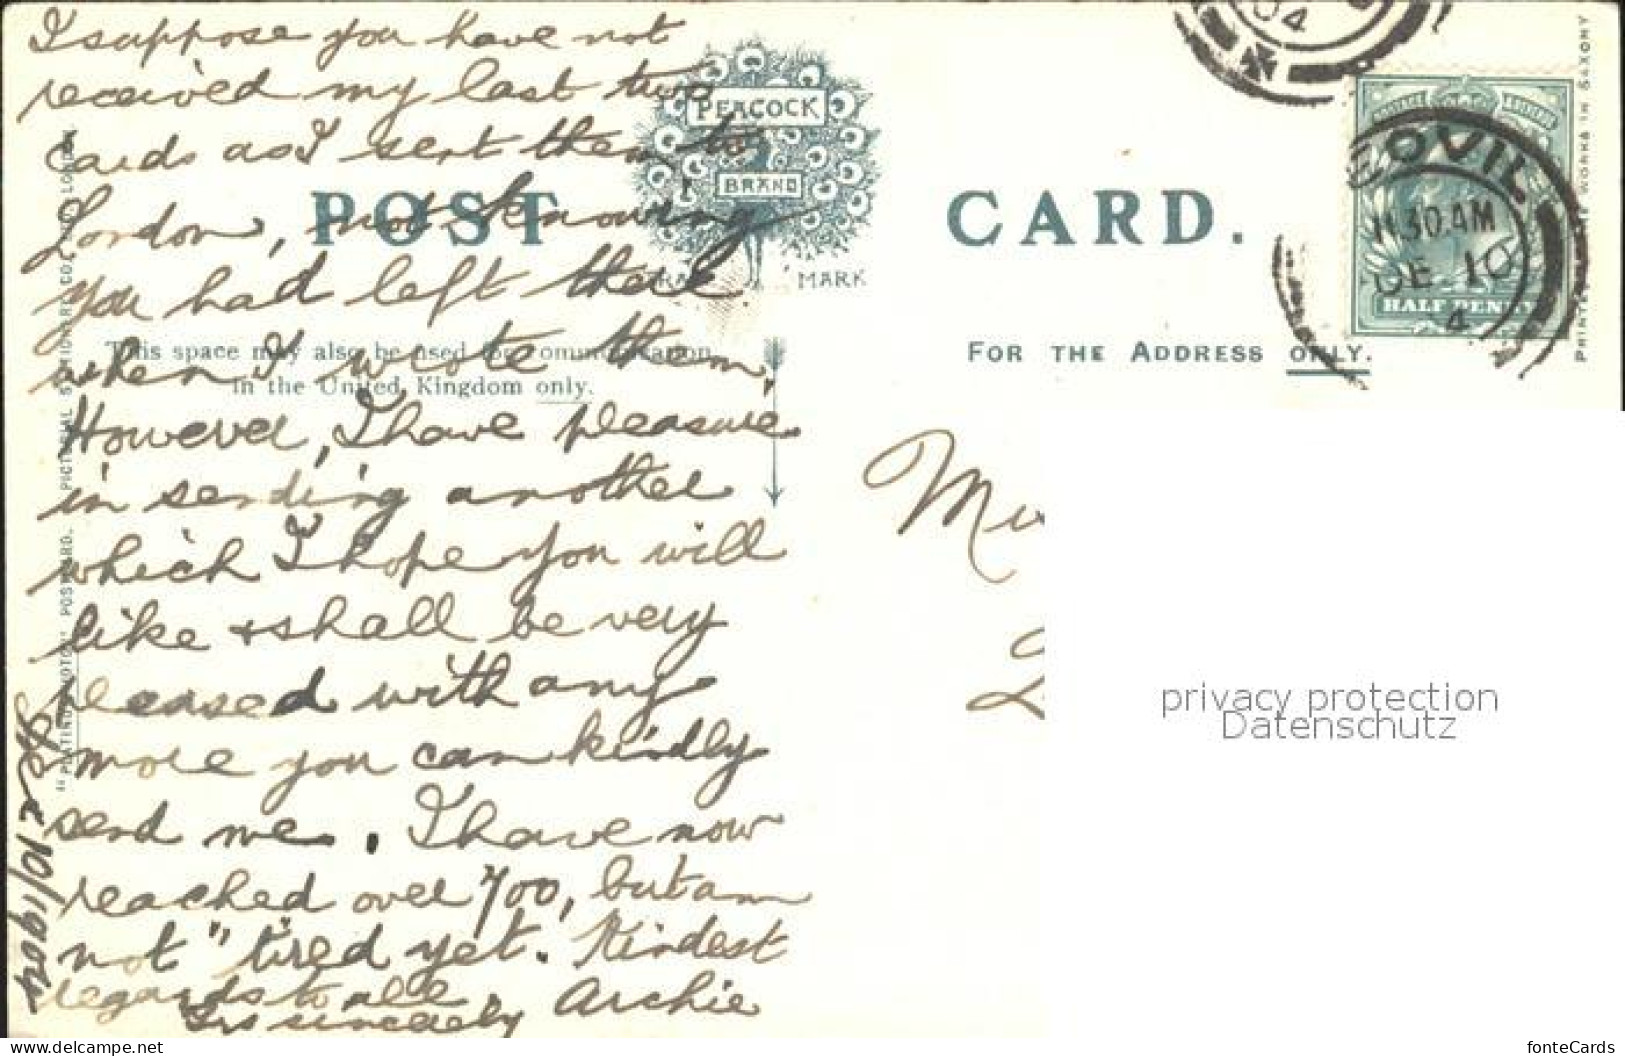 I suppose you have not
received my last two
cards as I sent them to
London, not knowing
you had left there
when I wrote them,
However, I have pleasure
in sending another
which I hope you will
like & shall be very
pleased with any
more you can kindly
send me. I have now
reached over 700, but am
not "tired yet. Kindest
regards to all.
Yrs sincerely Archie
10/1904
PEACOCK
BRAND
TRADE MARK
POST CARD.
This space may also be used for communication
in the United Kingdom only.
FOR THE ADDRESS ONLY.
PICTORIAL STATIONERY CO., LTD. LONDON.
POSTCARD.
04
YEOVIL
11.30 AM
DE 10
4
HALF PENNY
PRINTED AT THE WORKS IN SAXONY
privacy protection
Datenschutz
www.delcampe.net
fonteCards